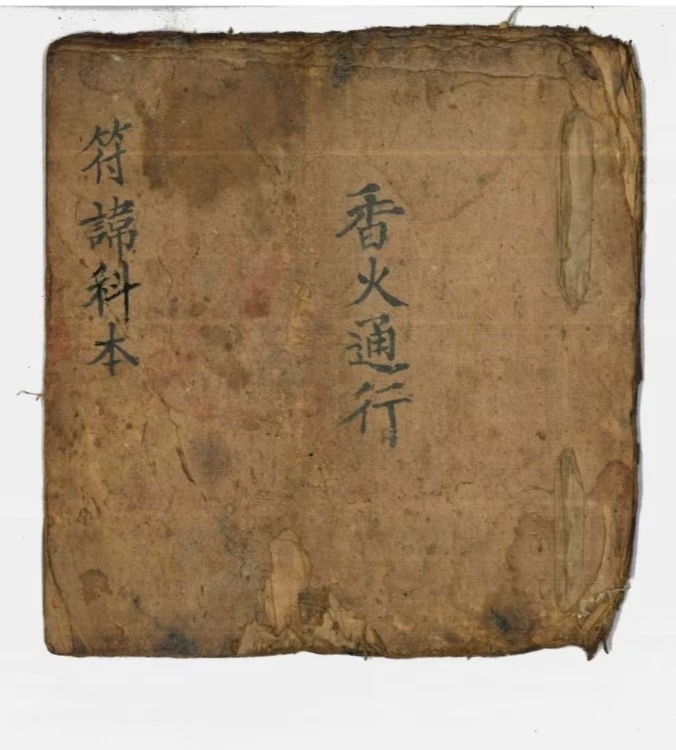 香火通行
符諱科本